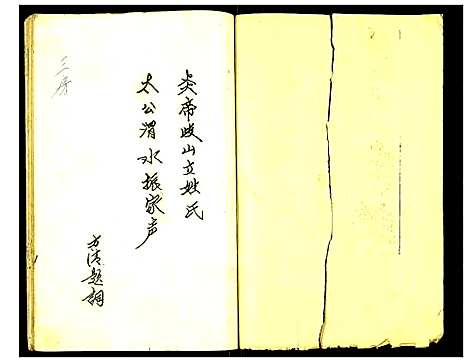 炎帝歧山立姓氏
太公渭水振家声
方清题词
三房